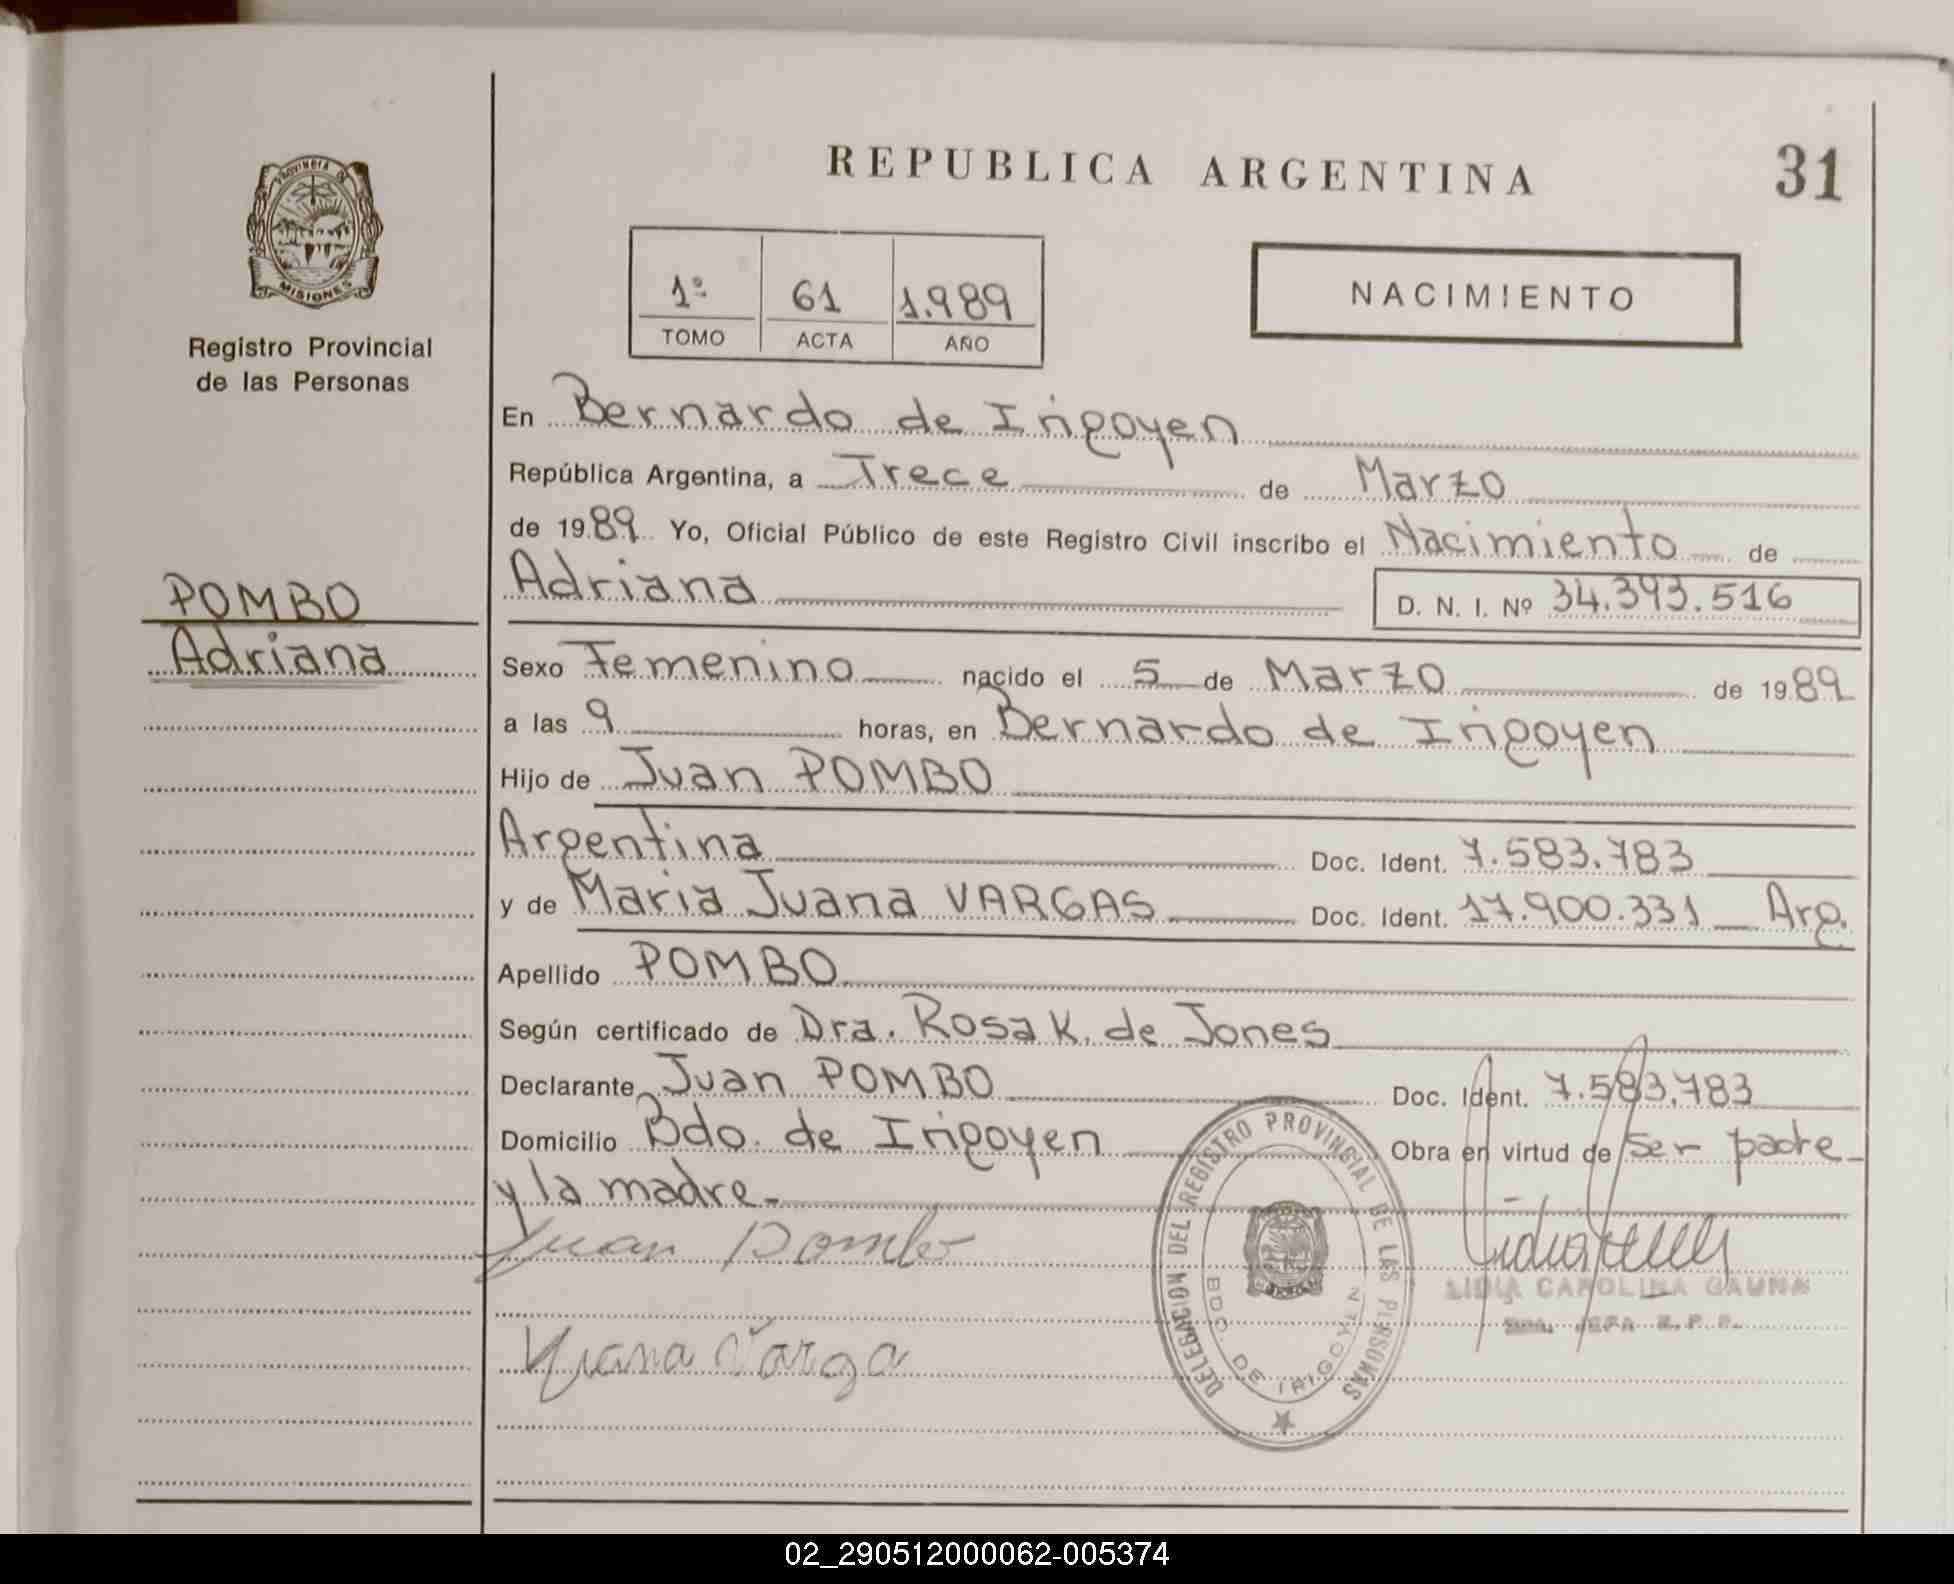 REPUBLICA ARGENTINA
31
PROVINCIA DE
MISIONES
Registro Provincial
de las Personas
1º 61 1.989
TOMO ACTA AÑO
NACIMIENTO
En Bernardo de Irigoyen
República Argentina, a Trece de Marzo
de 1989 Yo, Oficial Público de este Registro Civil inscribo el Nacimiento de
Adriana D. N. I. Nº 34.393.516
POMBO
Adriana
Sexo Femenino nacido el 5 de Marzo de 1989
a las 9 horas, en Bernardo de Irigoyen
Hijo de Juan POMBO
Argentina Doc. Ident. 7.583.783
y de Maria Juana VARGAS Doc. Ident. 17.900.331 Arg.
Apellido POMBO
Según certificado de Dra. Rosa K. de Jones
Declarante Juan POMBO Doc. Ident. 7.583.783
Domicilio Bdo. de Irigoyen Obra en virtud de ser padre
y la madre.
Juan Pombo
Juana Varga
DELEGACION DEL REGISTRO PROVINCIAL DE LAS PERSONAS
BDO. DE IRIGOYEN
LIDIA CAROLINA GAUNA
JEFA R.P.P.
02_290512000062-005374